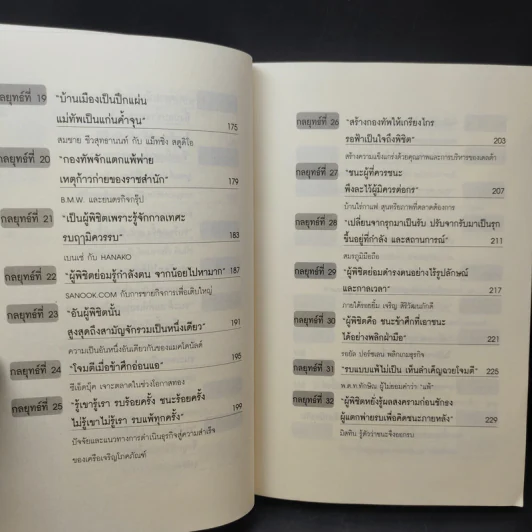 กลยุทธ์ที่ 19 "บ้านเมืองเป็นปึกแผ่น
แม่ทัพเป็นแก่นค้ำจุน" 175
สมชาย ชีวสุทธานนท์ กับ แม็ทชิ่ง สตูดิโอ
กลยุทธ์ที่ 20 "กองทัพจักแตกแพ้พ่าย
เหตุก้าวก่ายของราชสำนัก" 179
B.M.W. และยนตรกิจกรุ๊ป
กลยุทธ์ที่ 21 "เป็นผู้พิชิตเพราะรู้จักกาลเทศะ
รบฤๅมิควรรบ" 183
เบนเซ่ กับ HANAKO
กลยุทธ์ที่ 22 "ผู้พิชิตย่อมรู้กำลังตน จากน้อยไปหามาก" 187
SANOOK.COM กับการขายกิจการเพื่อเติบใหญ่
กลยุทธ์ที่ 23 "อันผู้พิชิตนั้น
สูงสุดถึงสามัญจักรวมเป็นหนึ่งเดียว" 191
ความเป็นอันหนึ่งอันเดียวกันของแมคโดนัลด์
กลยุทธ์ที่ 24 "โจมตีเมื่อข้าศึกอ่อนแอ" 195
ซีเอ็ดบุ๊ค เจาะตลาดในช่วงโอกาสทอง
กลยุทธ์ที่ 25 "รู้เขารู้เรา รบร้อยครั้ง ชนะร้อยครั้ง
ไม่รู้เขาไม่รู้เรา รบแพ้ทุกครั้ง" 199
ปัจจัยและแนวทางการดำเนินธุรกิจสู่ความสำเร็จ
ของเครือเจริญโภคภัณฑ์
กลยุทธ์ที่ 26 "สร้างกองทัพให้เกรียงไกร
รอฟ้าเป็นใจถึงพิชิต" 203
สร้างความแข็งแกร่งด้วยคุณภาพและการบริหารของเดลต้า
กลยุทธ์ที่ 27 "ชนะผู้ที่ควรชนะ
พึงละไว้ผู้มิควรต่อกร" 207
บ้านไร่กาแฟ สุนทรียภาพที่ตลาดต้องการ
กลยุทธ์ที่ 28 "เปลี่ยนจากรุกมาเป็นรับ ปรับจากรับมาเป็นรุก
ขึ้นอยู่ที่กำลัง และสถานการณ์" 211
สมรภูมิมือถือ
กลยุทธ์ที่ 29 "ผู้พิชิตย่อมดำรงตนอย่างไร้รูปลักษณ์
และกาลเวลา" 217
ภายใต้รอยยิ้ม เจริญ สิริวัฒนภักดี
กลยุทธ์ที่ 30 "ผู้พิชิตคือ ชนะข้าศึกที่เอาชนะ
ได้อย่างพลิกฝ่ามือ" 221
รอยัล ปอร์ซเลน พลิกเกมธุรกิจ
กลยุทธ์ที่ 31 "รบแบบแพ้ไม่เป็น เห็นสำเคัญฉวยโจมตี" 225
พ.ต.ท.ทักษิณ ผู้ไม่ยอมคำว่า "แพ้"
กลยุทธ์ที่ 32 "ผู้พิชิตหยั่งรู้ผลสงครามก่อนชักธง
ผู้แตกพ่ายรบเพื่อคิดชนะภายหลัง" 229
มิสทิน รู้ตัวว่าชนะจึงออกรบ